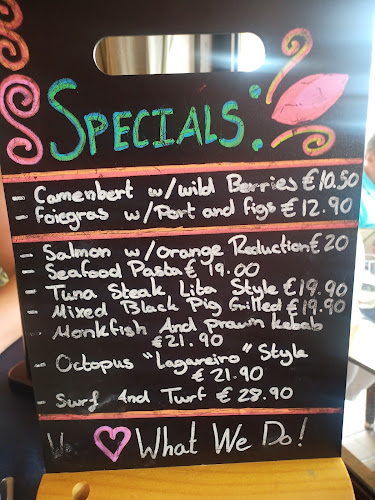 SPECIALS:
- Camembert w/wild Berries €10.50
- foiegras w/Port and figs €12.90
- Salmon w/orange Reduction €20
- Seafood Pasta € 19.00
- Tuna Steak Lita Style €19.90
- Mixed Black Pig Grilled €19.90
- Monkfish And prawn kebab
€21.90
- Octopus "Lagareiro" Style
€ 21.90
- Surf And Turf € 28.90
We ♡ What We Do!